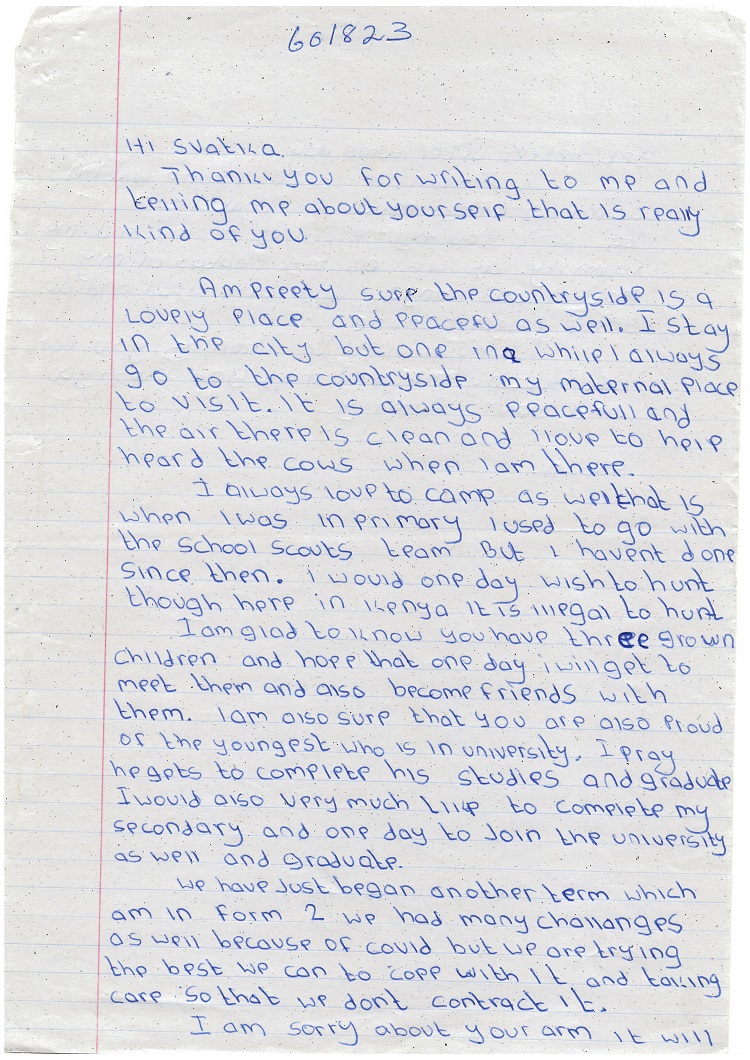 601823
Hi Svatka.
Thank you for writing to me and
telling me about yourself that is really
kind of you.
Am preety sure the countryside is a
Lovely place and peacefu as well. I stay
in the city but one ina while I always
go to the countryside my maternal place
to visit. It is always peacefull and
the air there is clean and I love to help
heard the cows when I am there.
I always love to camp as well that is
when I was in primary I used to go with
the school scouts team But I havent done
since then. I would one day wish to hunt
though here in Kenya it is illegal to hunt
I am glad to know you have three grown
children and hope that one day i will get to
meet them and also become friends with
them. I am also sure that you are also proud
of the youngest who is in university. I pray
he gets to complete his studies and graduate
I would also very much Like to complete my
secondary and one day to Join the university
as well and graduate.
We have Just began another term which
am in form 2 we had many challanges
as well because of covid but we are trying
the best we can to cope with it and taking
care so that we don't contract it.
I am sorry about your arm it will